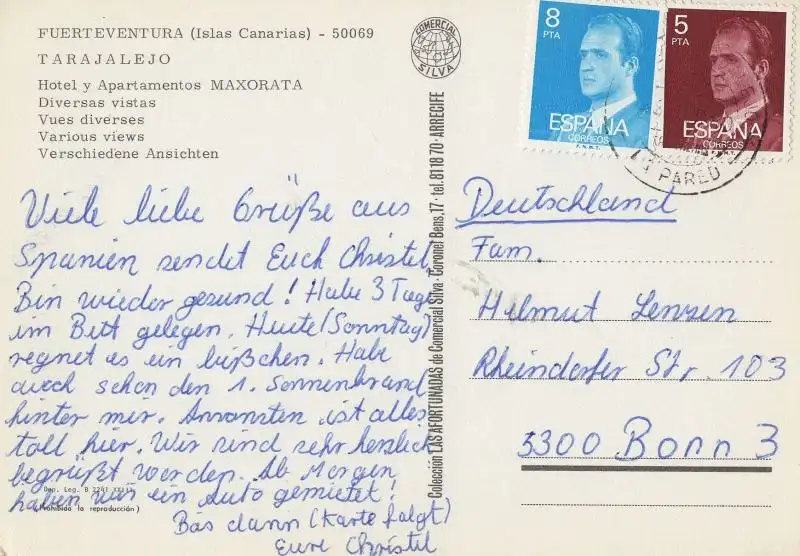 FUERTEVENTURA (Islas Canarias) - 50069
TARAJALEJO
Hotel y Apartamentos MAXORATA
Diversas vistas
Vues diverses
Various views
Verschiedene Ansichten
COMERCIAL
SILVA
8
PTA
ESPAÑA
CORREOS
5
PTA
ESPAÑA
CORREOS
PARED
Viele liebe Grüße aus
Spanien sendet Euch Christel
Bin wieder gesund! Habe 3 Tage
im Bett gelegen. Heute (Sonntag)
regnet es ein bißchen. Habe
auch schon den 1. Sonnenbrand
hinter mir. Ansonsten ist alles
toll hier. Wir sind sehr herzlich
begrüßt worden. Ab Morgen
haben wir ein Auto gemietet!
Bis dann (Karte folgt)
Eure Christel
Dep. Leg. B 2241
(Prohibida la reproducción)
Colección LAS AFORTUNADAS de Comercial Silva · Coronel Bens, 17 · tel. 81 18 70 · ARRECIFE
Deutschland
Fam.
Helmut Lenzen
Rheindorfer Str. 103
5300 Bonn 3